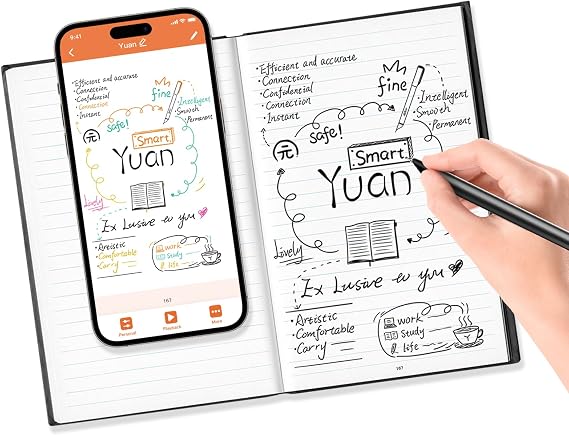 9:41
Yuan
Efficient and accurate
Connection
Confidential
Connection
Instant
fine
Intelligent
Smooth
Permanent
safe!
元
Smart
Yuan
Lively
Ex Lusive to you
Artistic
Comfortable
Carry
work
study
life
167
Personal
Playback
More
Efficient and accurate
Connection
Confidential
Connection
Instant
fine
Intelligent
Smooth
Permanent
safe!
元
Smart
Yuan
Lively
Ex Lusive to you
Artistic
Comfortable
Carry
work
study
life
Y
167